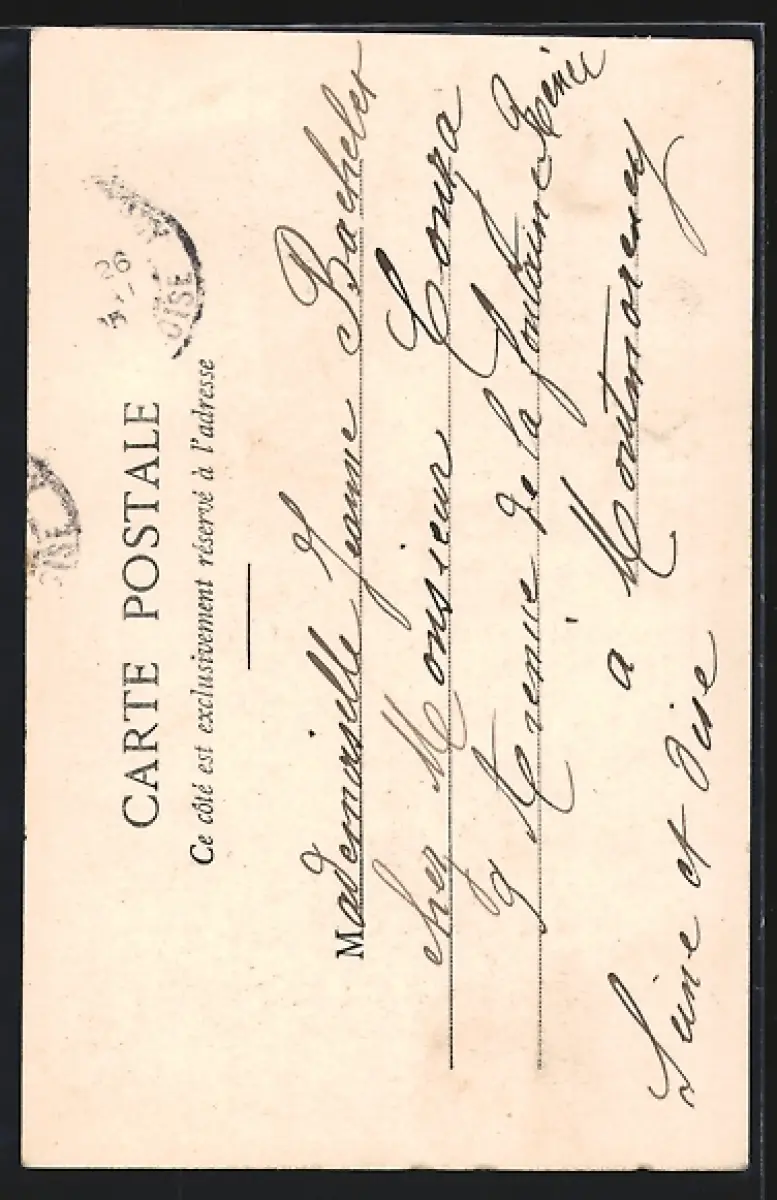 CARTE POSTALE
Ce côté est exclusivement réservé à l'adresse
Mademoiselle Jeanne Bachelet
chez Monsieur
9 Avenue de la fontaine René
à Montmorency
Seine et Oise
OISE
06
ISE